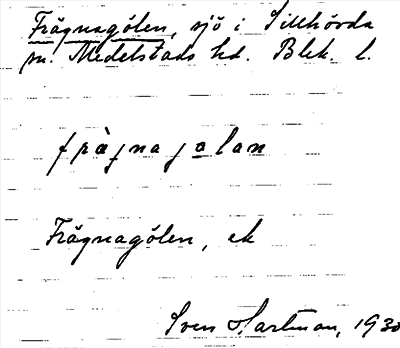 Frägnagölen, sjö i Tillhövda
sn. Medelstads hd. Blek. l.
fràgna gɵlan
Frägnagölen, ek
Sven Hartman, 1930